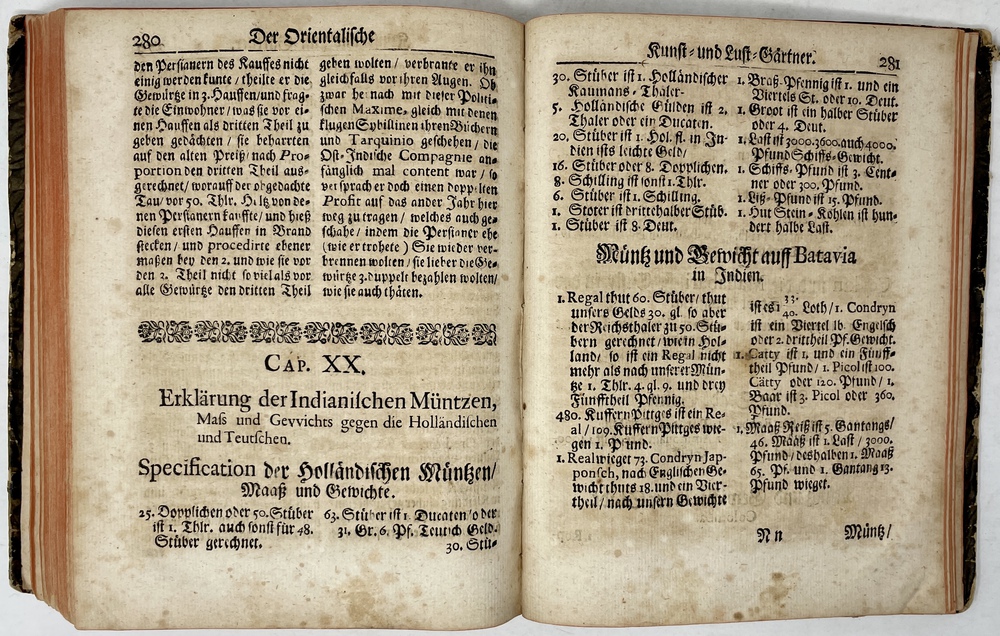 280 Der Orientalische
den Persianern des Kauffes nicht
einig werden kunte / theilte er die
Gewürtze in 3. Hauffen / und frag-
te die Einwohner / was sie vor ei-
nen Hauffen als dritten Theil zu
geben gedächten / sie beharrten
auf den alten Preiß / nach Pro-
portion den dritten Theil aus-
gerechnet / worauff der obgedachte
Tau / vor 50. Thlr. Holtz von de-
nen Persianern kauffte / und hieß
diesen ersten Hauffen in Brand
stecken / und procedirte ebener
maßen bey den 2. und wie sie vor
den 2. Theil nicht so viel als vor
alle Gewürtze den dritten Theil
geben wolten / verbrante er ihn
gleichfalls vor ihren Augen. Ob
zwar he nach mit dieser Politi-
schen Maxime, gleich mit denen
klugen Sybillinen ihren Büchern
und Tarquinio geschehen / die
Ost-Indische Compagnie an-
fänglich mal content war / so
versprach er doch einen doppelten
Profit auf das ander Jahr hier
weg zu tragen / welches auch ge-
schahe / indem die Persianer ehe
(wie er trohete) Sie wieder ver-
brennen wolten / sie lieber die Ge-
würtze 3. duppelt bezahlen wolten /
wie sie auch thäten.
CAP. XX.
Erklärung der Indianischen Müntzen,
Mass und Gevvichts gegen die Holländischen
und Teutschen.
Specification der Holländischen Müntzen /
Maaß und Gewichte.
25. Dopplichen oder 50. Stüber
ist 1. Thlr. auch sonst für 48.
Stüber gerechnet.
63. Stüber ist 1. Ducaten / oder
31. Gr. 6. Pf. Teutsch Geld.
30. Stü-
Kunst- und Lust-Gärtner. 281
30. Stüber ist 1. Holländischer
Kaumans-Thaler-
5. Holländische Gülden ist 2.
Thaler oder ein Ducaten.
20. Stüber ist 1. Hol. fl. in In-
dien ists leichte Geld /
16. Stüber oder 8. Dopplichen.
8. Schilling ist sonst 1. Thlr.
6. Stüber ist 1. Schilling.
1. Stoter ist drittehalber Stüb.
1. Stüber ist 8. Deut.
1. Braß-Pfennig ist 1. und ein
Viertels St. oder 10. Deut.
1. Groot ist ein halber Stüber
oder 4. Deut.
1. Last ist 3000. 3600. auch 4000.
Pfund Schiffs-Gewicht.
1. Schiffs-Pfund ist 3. Cent-
ner oder 300. Pfund.
1. Liß-Pfund ist 15. Pfund.
1. Hut Stein-Kohlen ist hun-
dert halbe Last.
Müntz und Gewicht auff Batavia
in Indien.
1. Regal thut 60. Stüber / thut
unsers Gelds 30. gl. so aber
der Reichsthaler zu 50. Stü-
bern gerechnet / wie in Hol-
land / so ist ein Regal nicht
mehr als nach unserer Mün-
tze 1. Thlr. 4. gl. 9. und drey
Fünfftheil Pfennig.
480. Kuffern Pittges ist ein Re-
al / 109. Kuffern Pittges wie-
gen 1. Pfund.
1. Real wieget 73. Condryn Jap-
ponsch, nach Englischen Ge-
wicht thuts 18. und ein Vier-
theil / nach unsern Gewichte
ist es 1 33/40. Loth / 1. Condryn
ist ein Viertel lb. Engelsch
oder 2. drittheil Pf. Gewicht.
1. Catty ist 1. und ein Fünff-
theil Pfund / 1. Picol ist 100.
Cätty oder 120. Pfund / 1.
Baar ist 3. Picol oder 360.
Pfund.
1. Maaß Reiß ist 5. Gantangs /
46. Maaß ist 1. Last / 3000.
Pfund / deshalben 1. Maaß
65. Pf. und 1. Gantang 13.
Pfund wieget.
N n Müntz /